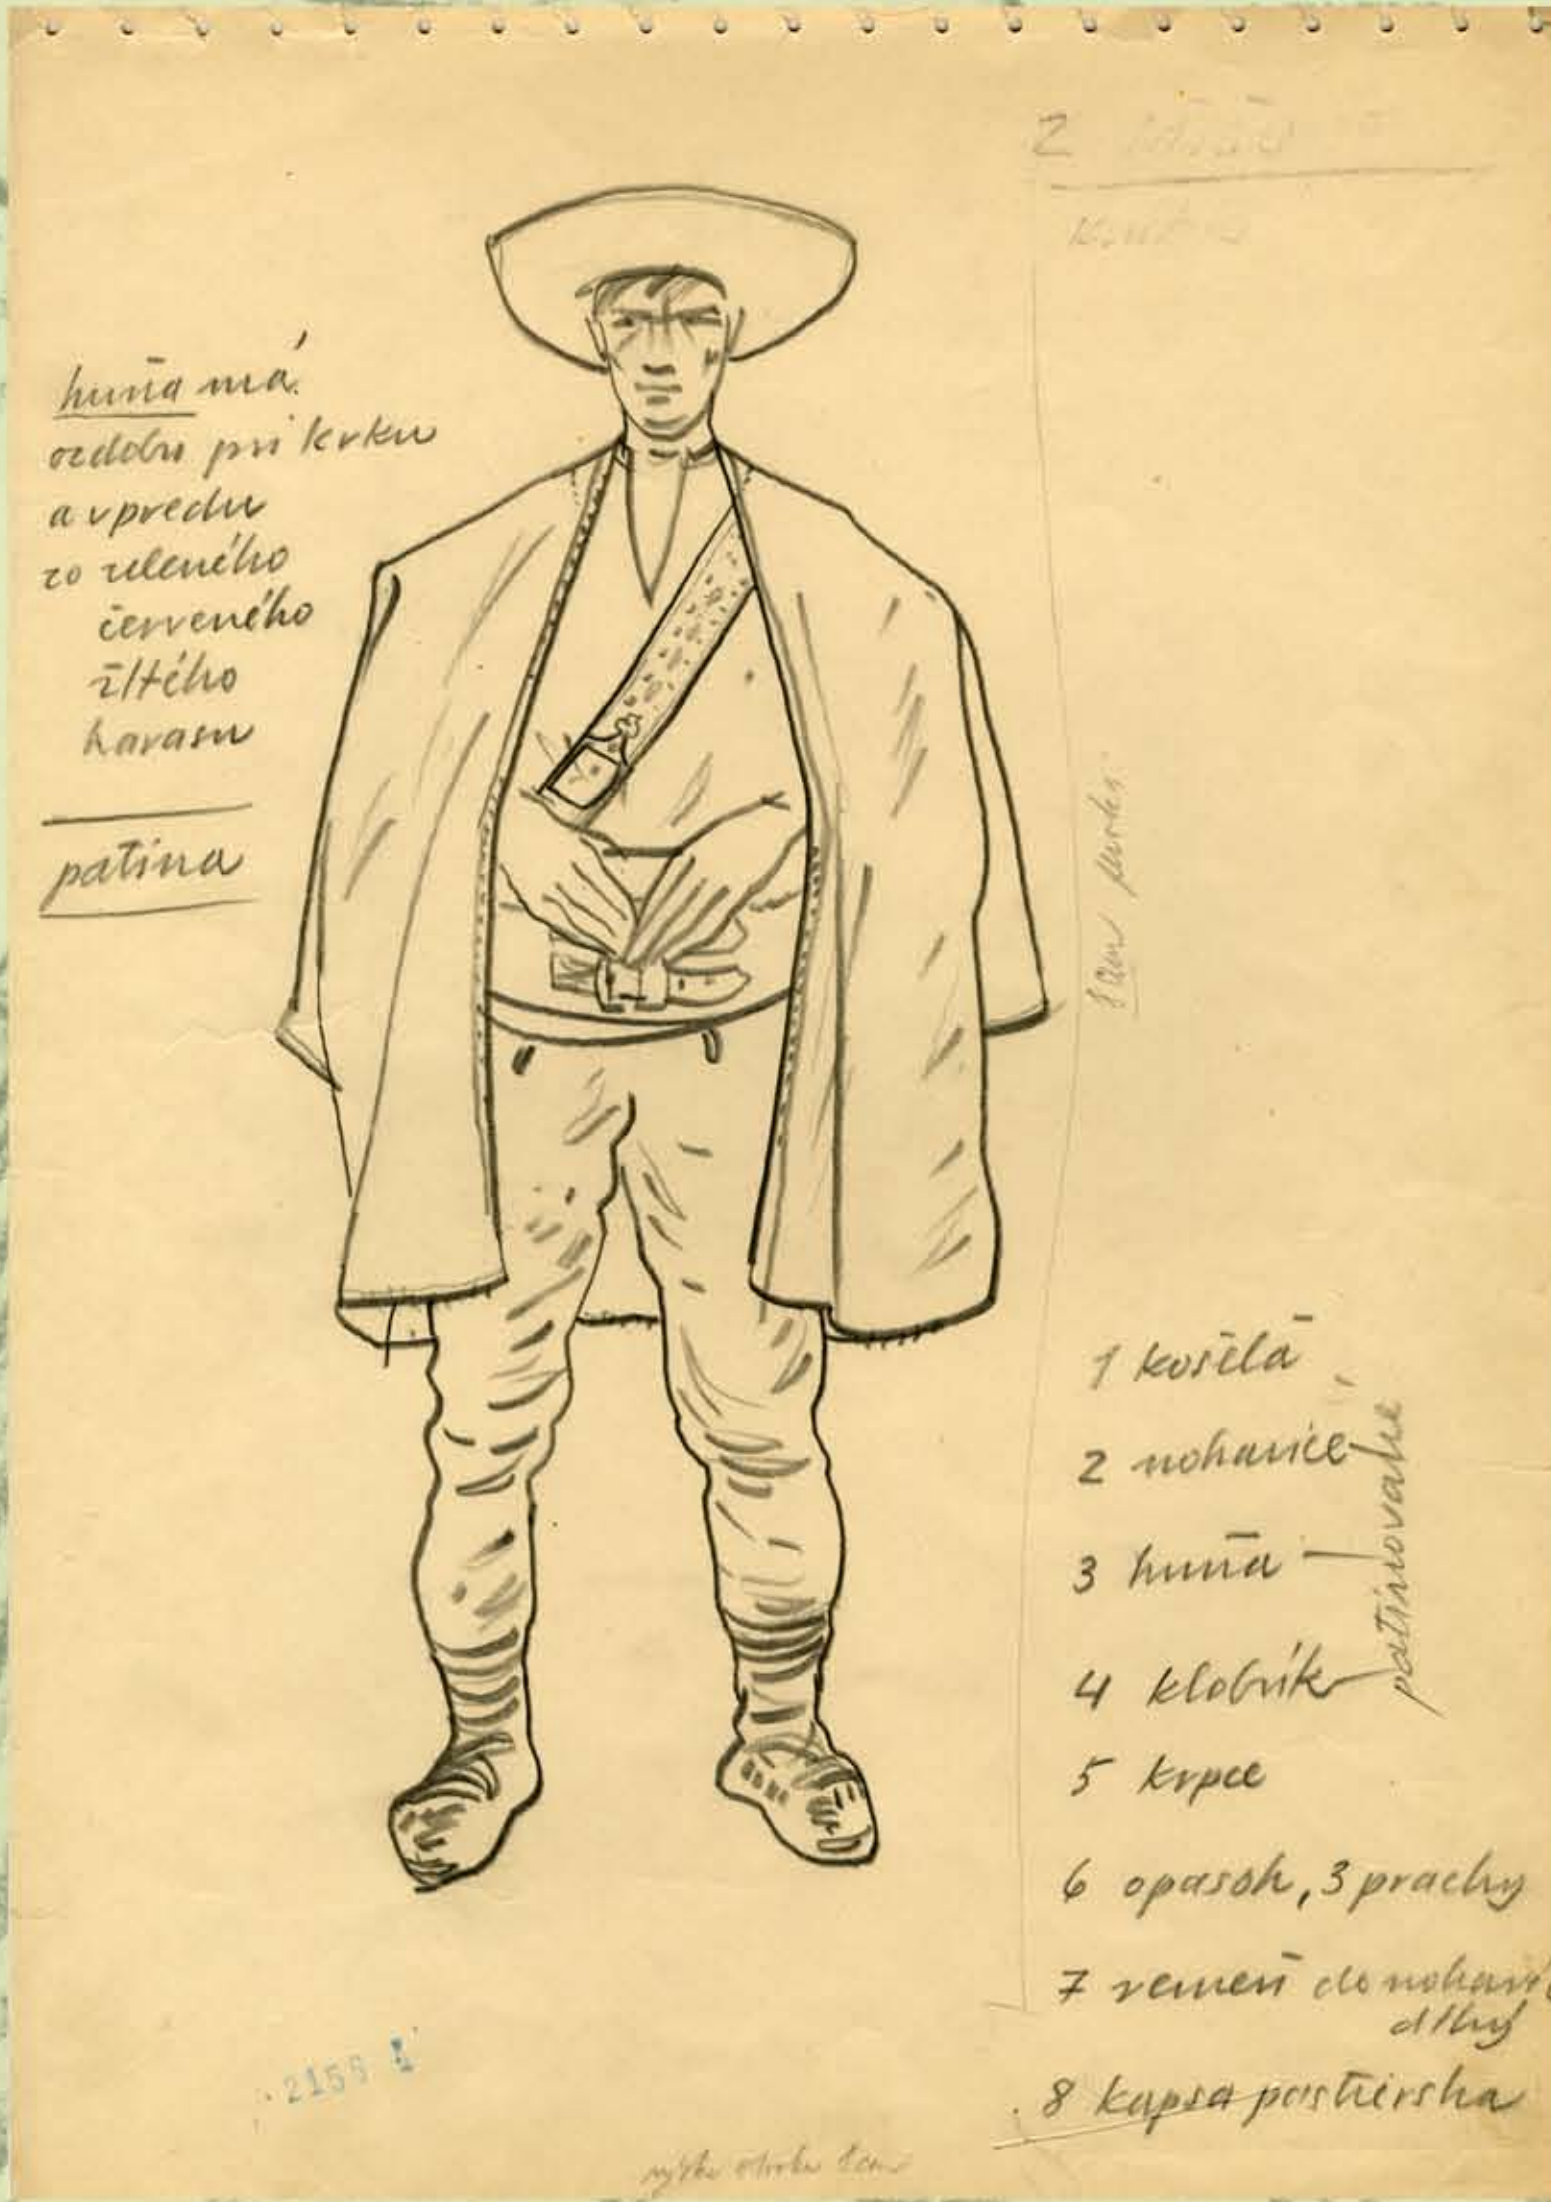 2
huňa má
ozdobu pri krku
a vpredu
zo zeleného
červeného
žltého
harasu
patina
1 košela
2 nohavice
3 huňa
4 klobúk
patinované
5 krpce
6 opasok, 3 pracky
7 remeň do nohavíc
dlhý
8 kapsa pastierska
2159